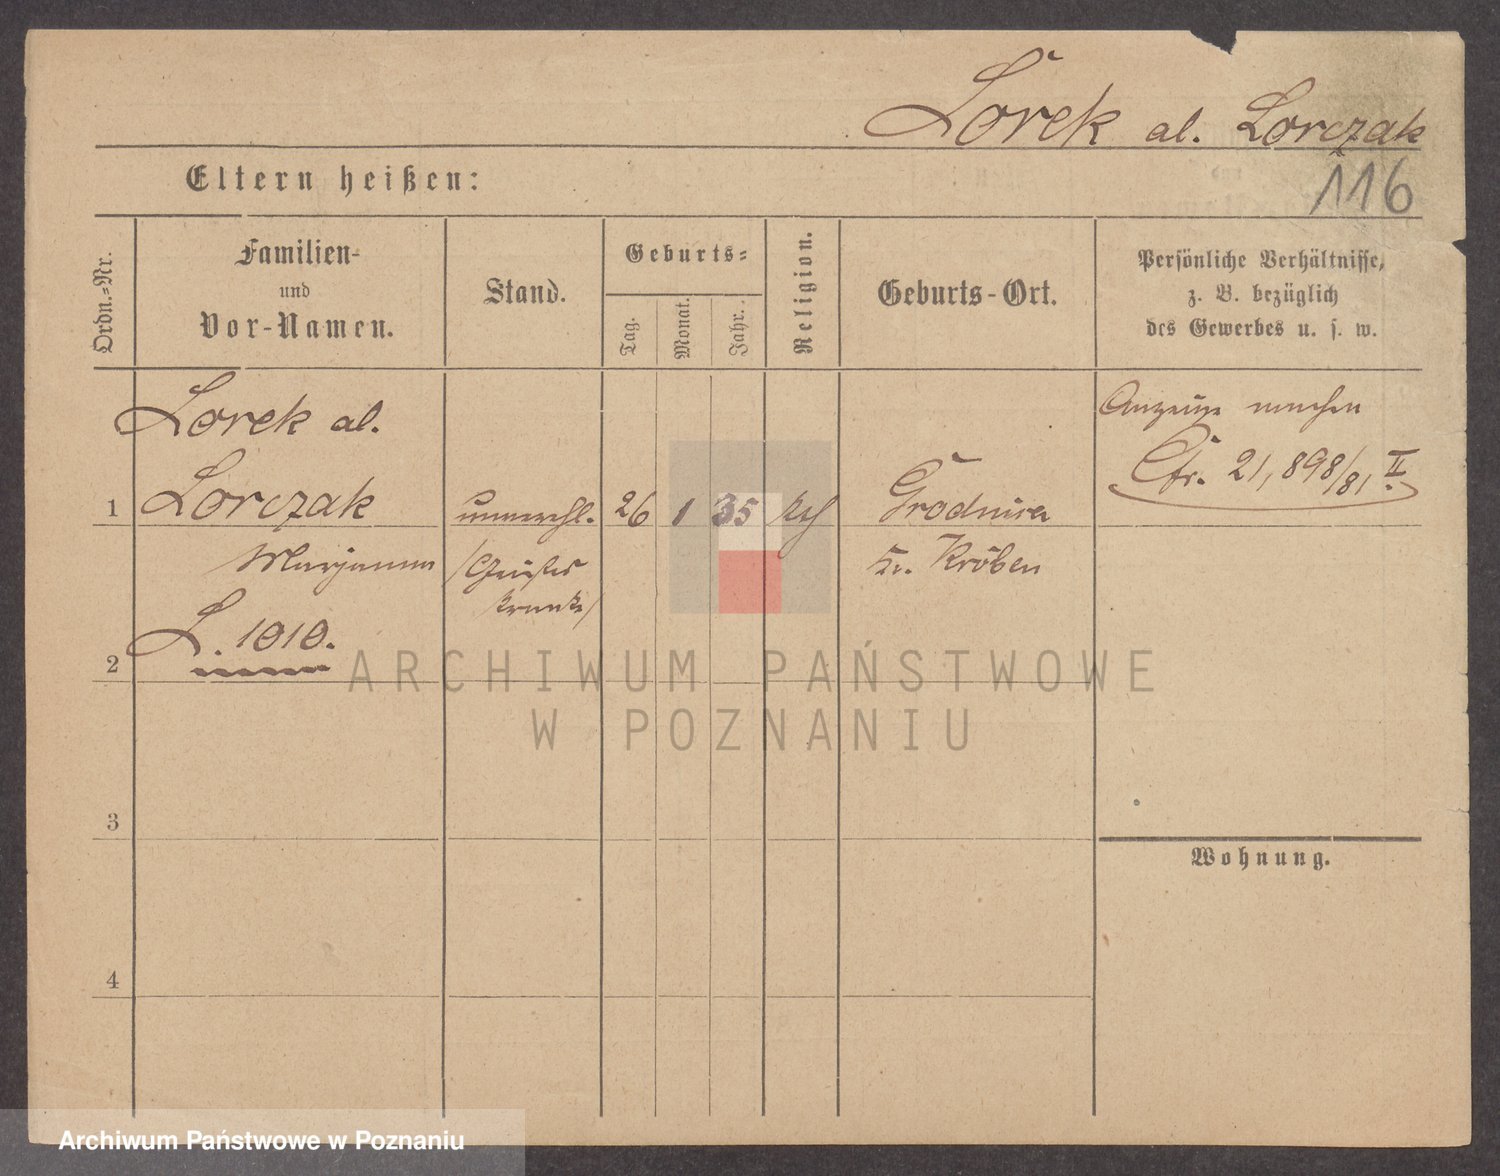 Lorek al. Lorczak
116
Eltern heißen:
Ordn.-Nr.
Familien-
und
Vor-Namen.
Stand.
Geburts-
Tag.
Monat.
Jahr.
Religion.
Geburts-Ort.
Persönliche Verhältnisse,
z. B. bezüglich
des Gewerbes u. s. w.
Lorek al.
1 Lorczak
unverehl. 26 1 35 kth
Marjanna
/Geistes
krank/
Kr. Kröben
Anzeige machen
Cfr. 21,898/81 II.
2 L. 1010.
3
4
Wohnung.
ARCHIWUM PAŃSTWOWE
W POZNANIU
Archiwum Państwowe w Poznaniu